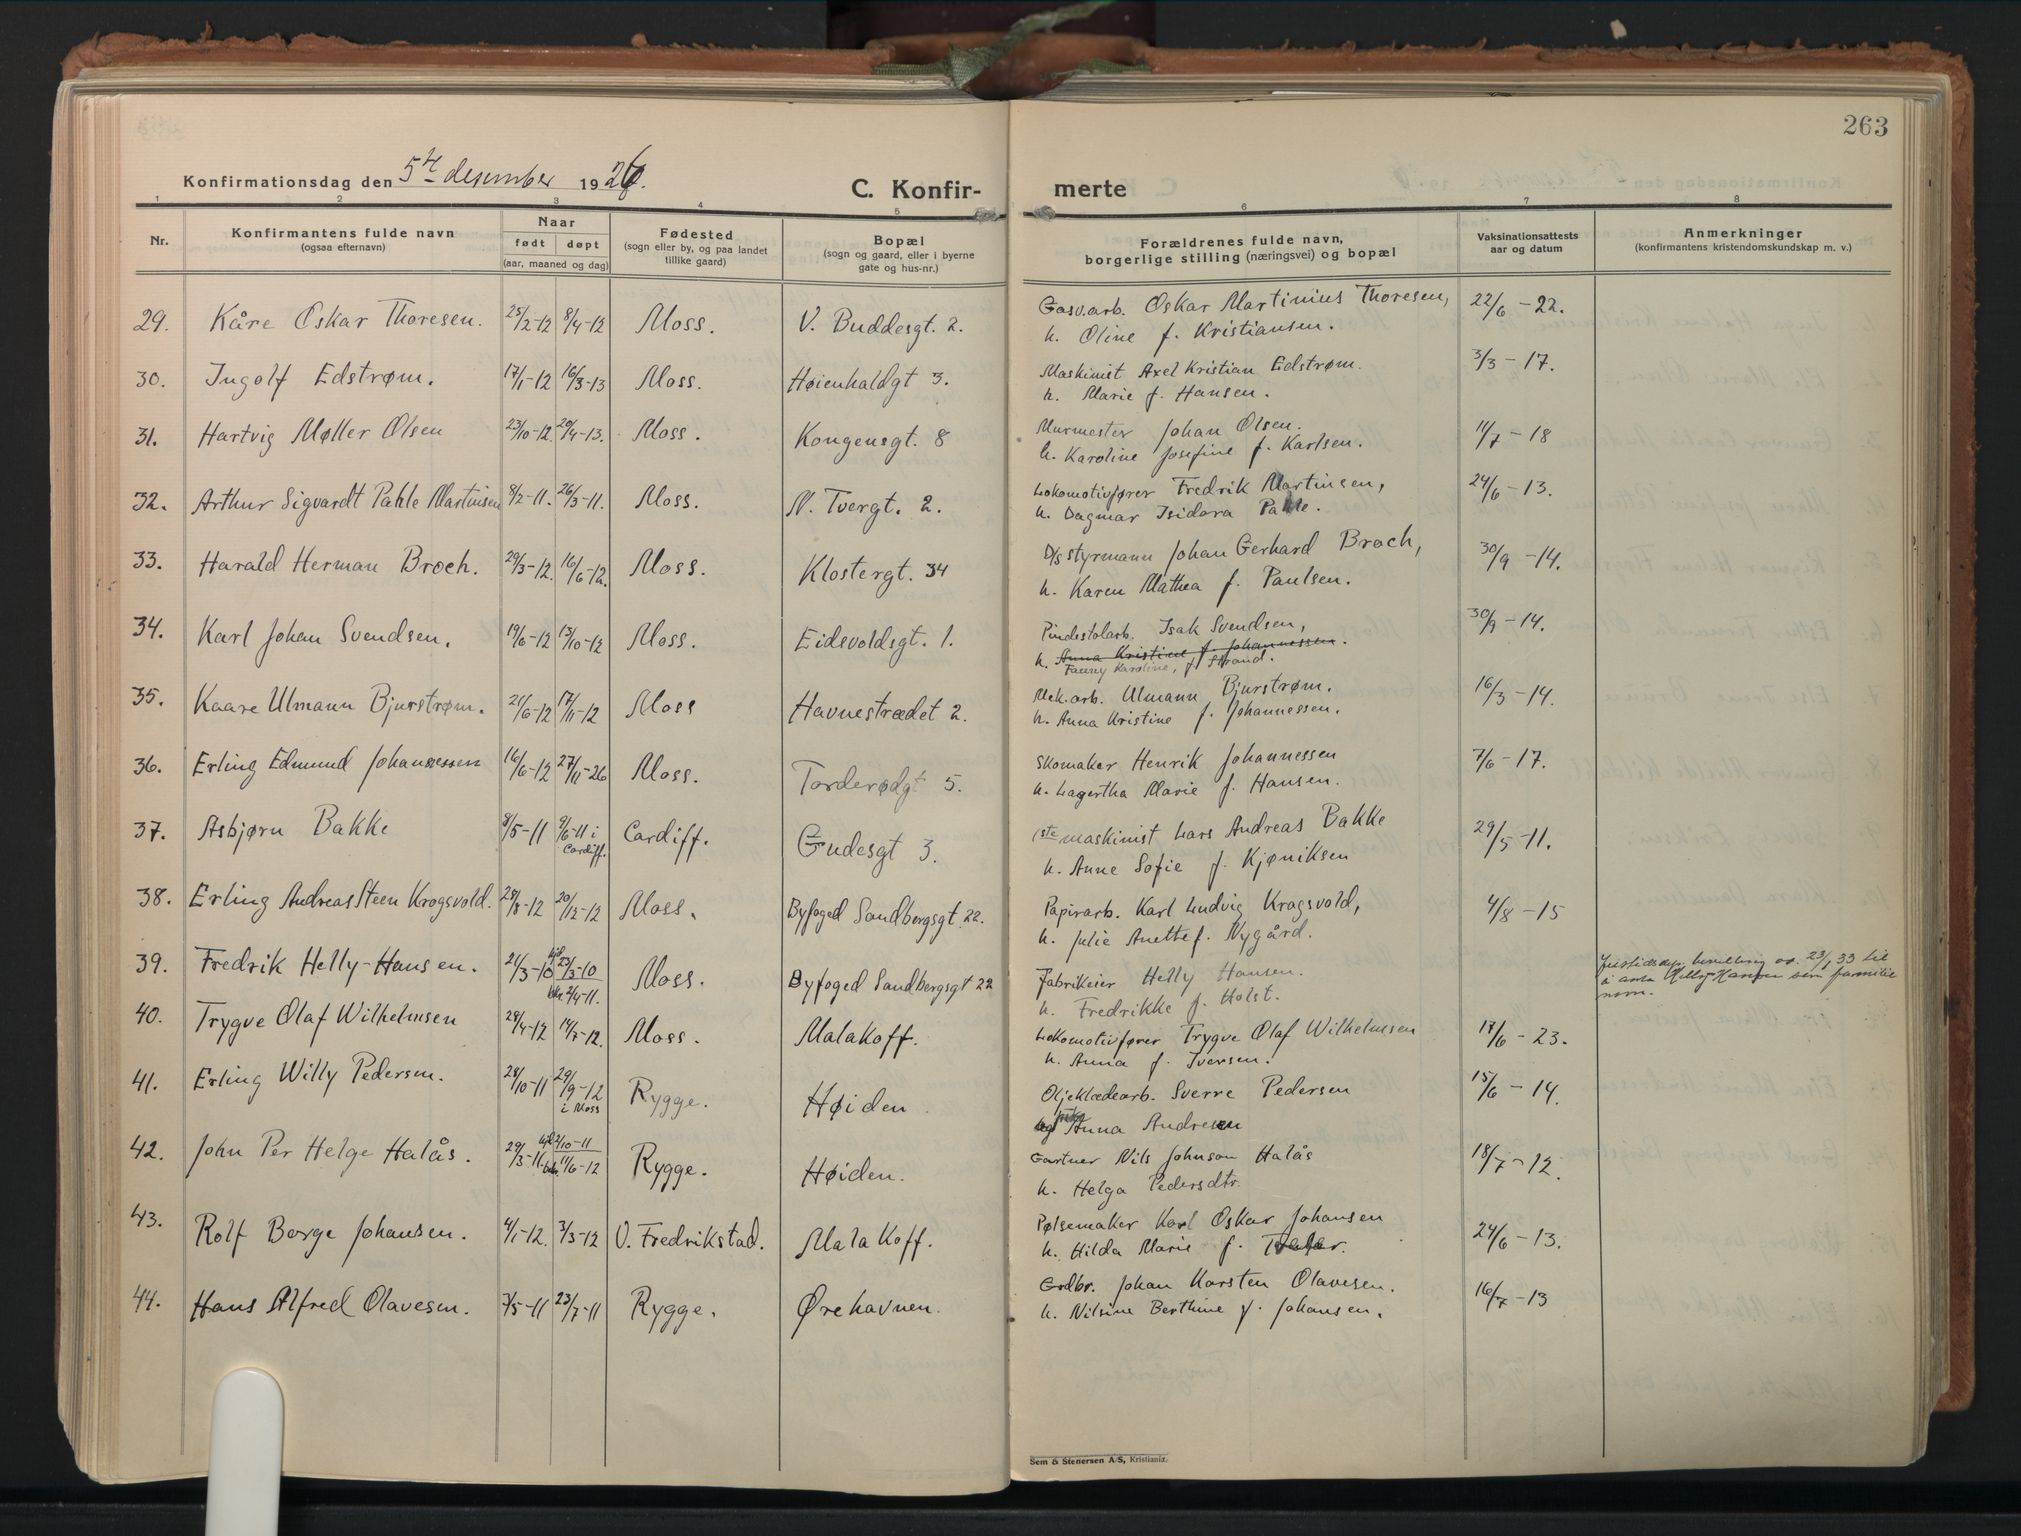 263
Konfirmationsdag den 5te desember 1926.
C. Konfir- merte
1 2 3 4 5 6 7 8
Nr.
Konfirmantens fulde navn
(ogsaa efternavn)
Naar
født døpt
(aar, maaned og dag)
Fødested
(sogn eller by, og paa landet
tillike gaard)
Bopæl
(sogn og gaard, eller i byerne
gate og hus-nr.)
Forældrenes fulde navn,
borgerlige stilling (næringsvei) og bopæl
Vaksinationsattests
aar og datum
Anmerkninger
(konfirmantens kristendomskundskap m. v.)
29. Kåre Oskar Thoresen. 25/2-12 8/4-12 Moss. V. Buddesgt. 2. Gasv.arb. Oskar Martinius Thoresen, 22/6-22.
h. Oline f. Kristiansen.
30. Ingolf Edstrøm. 17/1-12 16/3-13 Moss. Høienhaldgt 3. Maskinist Axel Kristian Edstrøm. 3/3-17.
h. Marie f. Hansen.
31. Hartvig Møller Olsen 23/10-12. 20/4-13. Moss. Kongensgt. 8 Murmester Johan Olsen. 11/7-18
h. Karoline Josefine f. Karlsen.
32. Arthur Sigvardt Pahle Martinsen 8/2-11. 26/3-11. Moss. N. Tvergt. 2. Lokomotivfører Fredrik Martinsen, 24/6-13.
h. Dagmar Isidora Pahle.
33. Harald Herman Broch. 29/3-12. 16/6-12. Moss. Klostergt. 34 D/s styrmann Johan Gerhard Broch, 30/9-14.
h. Karen Mathea f. Paulsen.
34. Karl Johan Svendsen. 19/6-12 13/10-12 Moss. Eidsvoldsgt. 1. Pindestolarb. Isak Svendsen, 30/9-14.
h. Anna Kristine f. Johannessen.
Fanny Karoline, f. Strand.
35. Kaare Ulmann Bjurstrøm. 21/6-12 17/11-12 Moss Havnestrædet 2. Mek.arb. Ulmann Bjurstrøm. 16/3-14.
h. Anna Kristine f. Johannessen.
36. Erling Edmund Johannessen 16/6-12 27/11-26 Moss. Torderødgt 5. Skomaker Henrik Johannessen 7/6-17.
h. Lagertha Marie f. Hansen.
37. Asbjørn Bakke 8/5-11 9/6-11 i Cardiff. Cardiff. Gudesgt 3. 1ste maskinist Lars Andreas Bakke 29/5-11.
h. Anne Sofie f. Kjøniksen
38. Erling Andreas Steen Krogsvold. 28/8-12 20/12-12 Moss. Byfoged Sandbergsgt. 22. Papirarb. Karl Ludvig Krogsvold, 4/8-15
h. Julie Anette f. Nygård.
39. Fredrik Helly-Hansen. 21/3-10 hjd 23/3-10 bkr. 2/4-11. Moss. Byfoged Sandbergsgt 22 Fabrikeier Helly Hansen.
h. Fredrikke f. Holst.
bevilling av 23/1 33 til
å anta Helly-Hansen som familie
navn.
40. Trygve Olaf Wilhelmsen 28/4-12 14/7-12. Moss. Malakoff. Lokomotivfører Trygve Olaf Wilhelmsen 17/6-23.
h. Anna f. Iversen.
41. Erling Willy Pedersen. 28/10-11 29/9-12 i Moss Rygge. Høiden. Oljeklædearb. Sverre Pedersen 15/6-14.
Anna Andresen
42. John Per Helge Halås. 29/3-11. hjd 2/10-11 bkr. 11/6-12 Rygge. Høiden. Gartner Nils Johnson Halås 18/7-12.
h. Helga Pedersdtr.
43. Rolf Borge Johansen. 4/1-12. 3/3-12 V. Fredrikstad. Malakoff. Pølsemaker Karl Oskar Johansen 24/6-13.
h. Hilda Marie f.
44. Hans Alfred Olavesen. 7/5-11 23/7-11 Rygge. Ørehavnen. Grdbr. Johan Karsten Olavesen. 16/7-13
h. Nilsine Berthine f. Johansen.
Sem & Stenersen A/S, Kristiania.